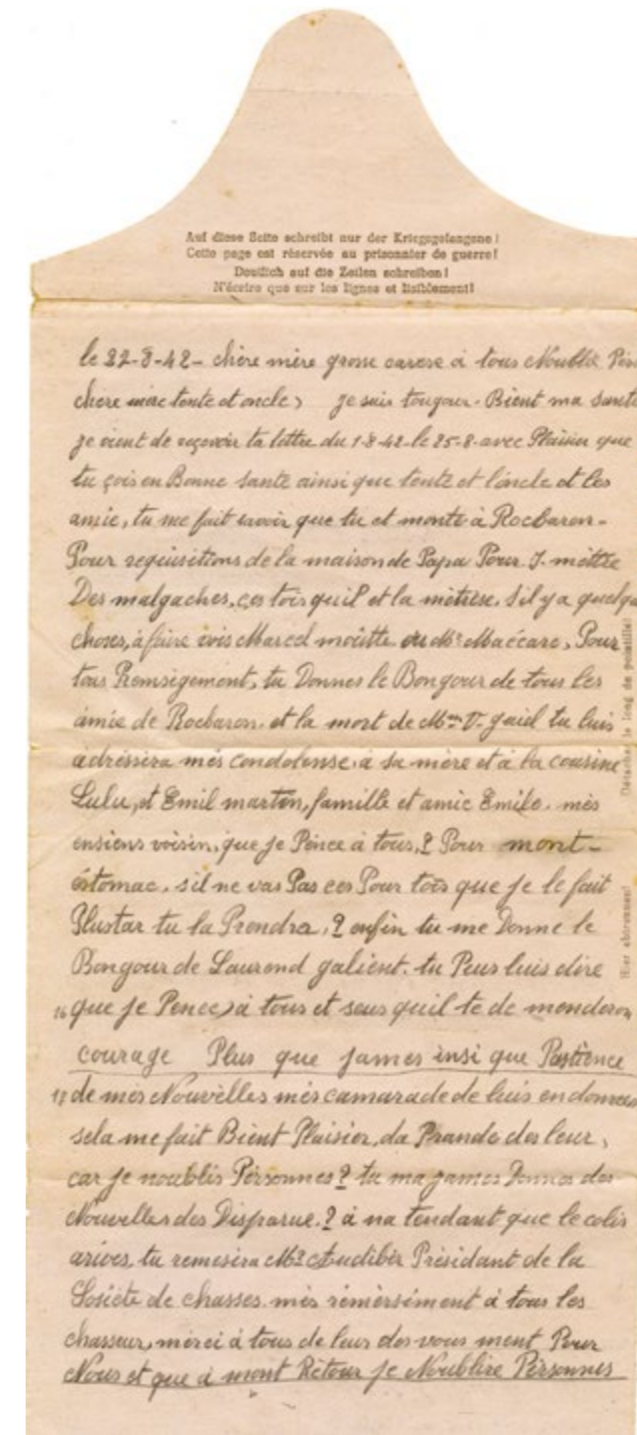 Auf diese Seite schreibt nur der Kriegsgefangene!
Cette page est réservée au prisonnier de guerre!
Deutlich auf die Zeilen schreiben!
N'écrire que sur les lignes et lisiblement!
le 22-8-42- chère mère grosse carese à tous Noublie
chere mère tente et oncle je suis tougour. Bient ma Santé
je vient de reçevoir ta lettre du 1-8-42 le 25-8- avec Plaisir que
tu çois en Bonne Santé ainsi que tente et l'oncle et les
amie, tu me fait savoir que tu et monté à Rocbaron-
Pour requisitions de la maison de Papa Pour. I. mettre
Des malgaches, ces tois quil et la mètrese. Sil y a quelque
choses, à faire vois Marcel moutte ou Mr Maccaro, Pour
tous Remsigement, tu Donnes le Bongour de tous les
amie de Rocbaron. et la mort de Mme V. tu luis
adréssera més condolense, a sa mère et à la cousine
Lulu, et Emil martin, famille et amie Emile. més
ensiens voisin, que je Pence à tous,? Pour mont-
éstomac, sil ne vas Pas ces Pour tois que je le fait
Plustar tu la Prendra,? enfin tu me Donne le
Bongour de Laurend galient. tu Peus luis dire
16 que je Pence à tous et seus quil te de menderon
courage Plus que james insi que Pastience
18 de més Nouvelles més camarade de luis en donner
sela me fait Bient Plaisier, da Prande des leur,
car je noublis Pérsonnes? tu ma james Donner des
Nouvelles des Disparue.? à na tendant que le colis
arives, tu remesira Mr Audiber Présidant de la
Sosiéte de chasses. més rémèrsiment à tous les
chasseur, mérci à tous de leur des vous ment Pour
Nous et que à mont Rétour je Noublire Pérsonnes
Détacher le long du pointillé!
Hier abtrennen!